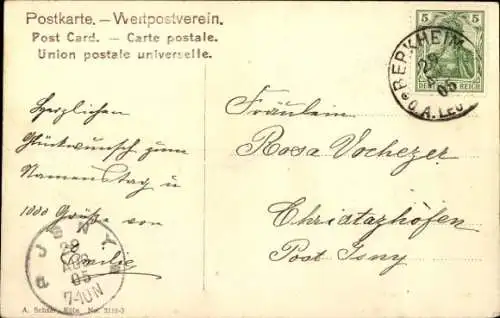 Postkarte. — Weltpostverein.
Post Card. — Carte postale.
Union postale universelle.
5 5
DEUTSCHES REICH
BERKHEIM
29
05
O.A. LEU
Herzlichen
Glückwunsch zum
Namenstag u
1000 Grüße von
Emilie
Fräulein
Rosa Vochezer
Christazhofen
Post Isny
JSNY
29
AUG
05
7-10N
A. Schaar, Köln, No. 3119-3